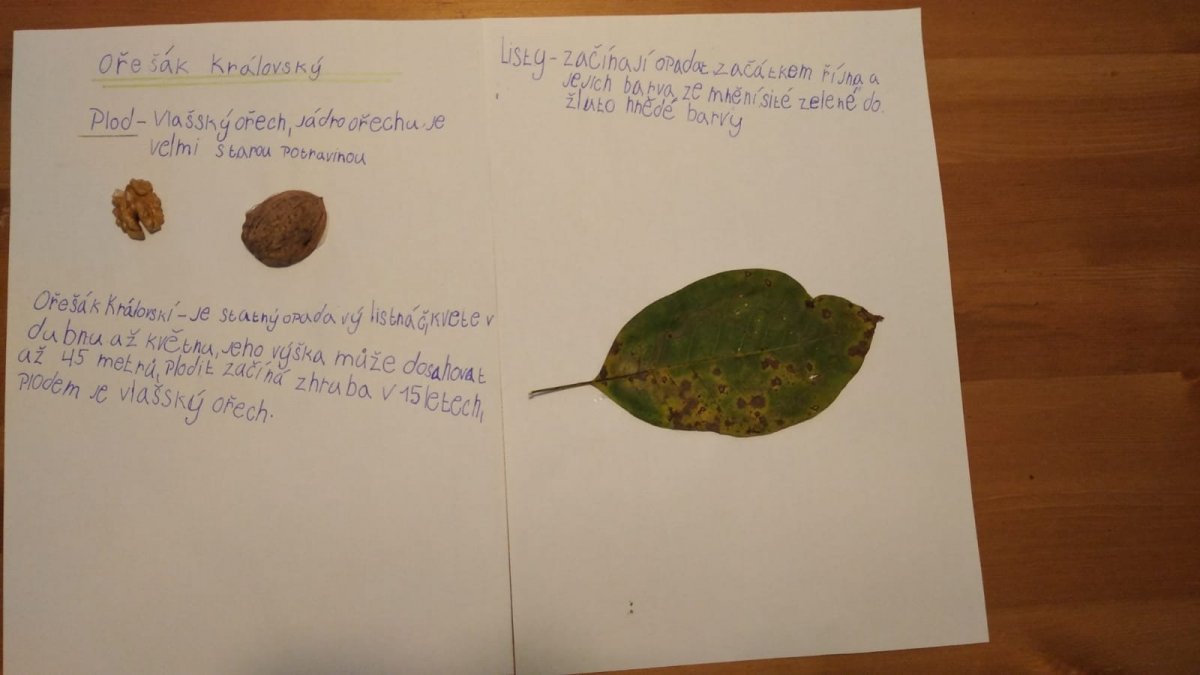 Ořešák Královský
Plod - Vlašský ořech, jádro ořechu je
velmi starou potravinou
Ořešák Královskí - je statný opadavý listnáč, kvete v
dubnu až květnu, jeho výška může dosahovat
až 45 metrů, plodit začíná zhruba v 15 letech,
plodem je vlašský ořech.
Listy - začínají opadat začátkem října a
jejich barva ze mnění sité zeleně do
žluto hnědé barvy